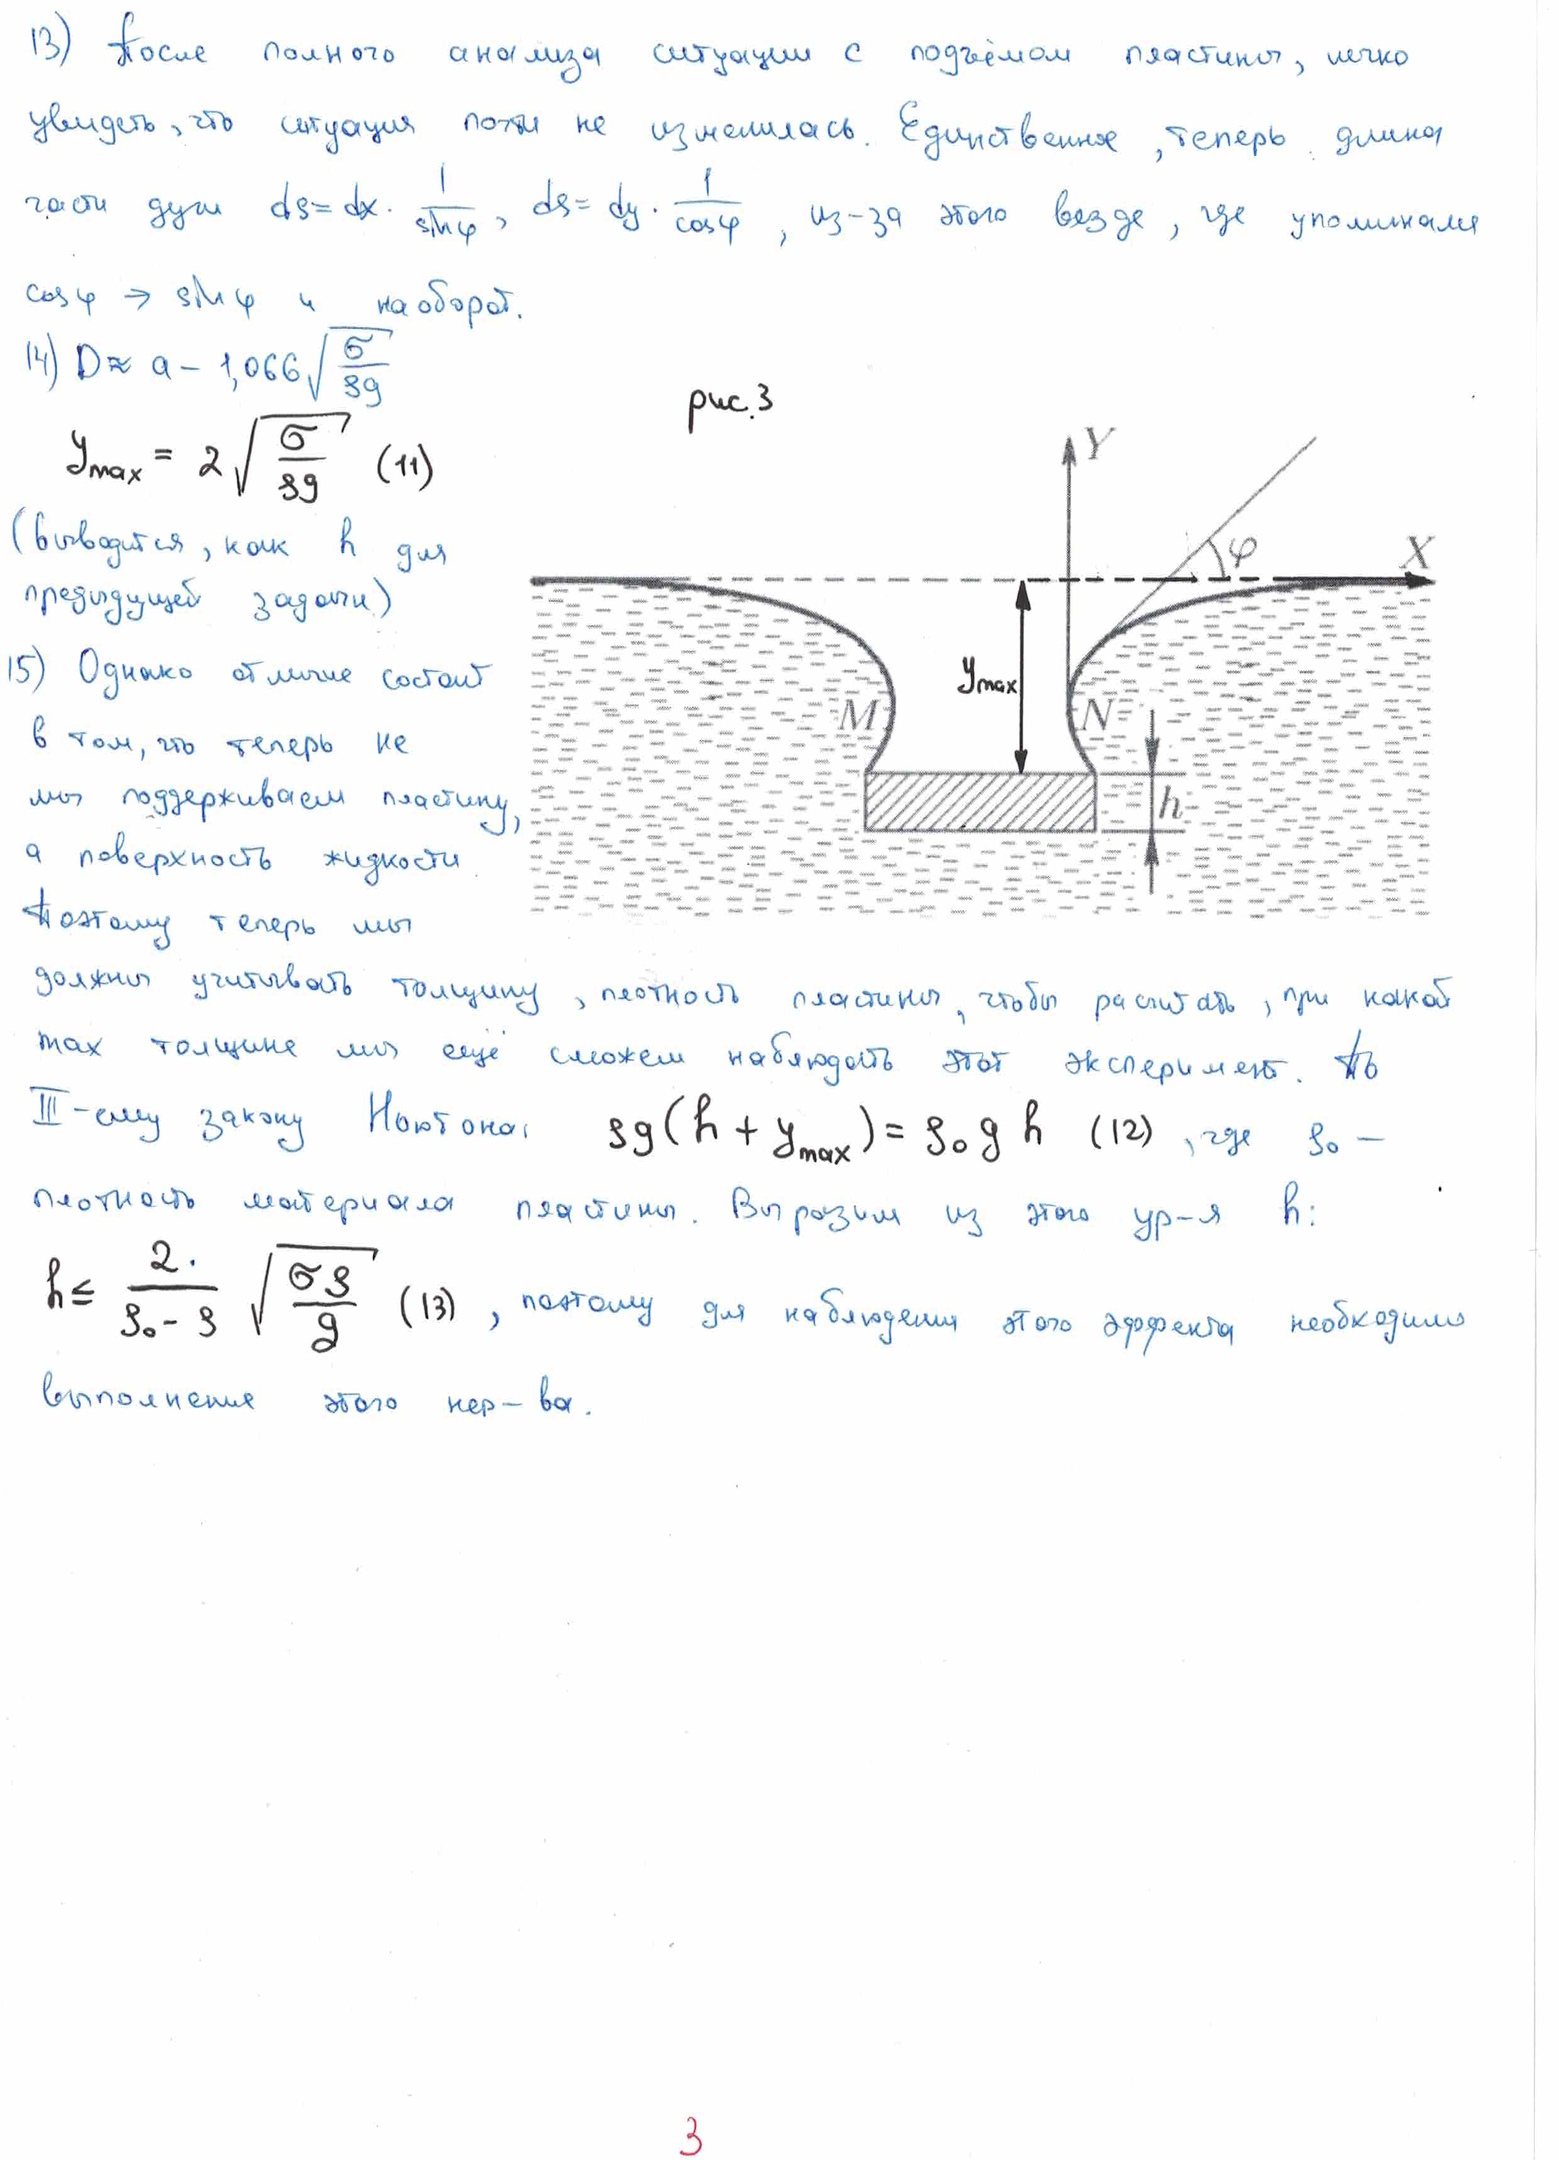 13) После полного анализа ситуации с подъёмом пластины, легко
увидеть, что ситуация почти не изменилась. Единственное, теперь длина
части дуги ds = dx · 1/sinφ, ds = dy · 1/cosφ, из-за этого везде, где упоминали
cosφ → sinφ и наоборот.
14) D ≈ a − 1,066 √(σ/ρg)
рис. 3
y max = 2 √(σ/ρg) (11)
(выводится, как h для
предыдущей задачи)
Y
φ
X
y max
M
N
h
15) Однако отличие состоит
в том, что теперь не
мы поддерживаем пластину,
а поверхность жидкости
Поэтому теперь мы
должны учитывать толщину, плотность пластины, чтобы расчитать, при какой
max толщине мы ещё сможем наблюдать этот эксперимент. По
III-ему закону Ньютона: ρg(h + y max) = ρ₀gh (12), где ρ₀ —
плотность материала пластины. Выразим из этого ур-я h:
h ≤ 2·/(ρ₀ − ρ) √(σρ/g) (13), поэтому для наблюдения этого эффекта необходимо
выполнение этого нер-ва.
3